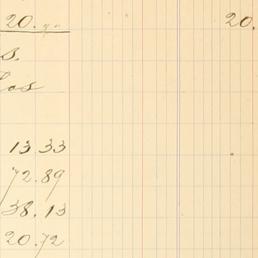 20. 20.
s.
Cos
13 33
72.89
38.13
20.72